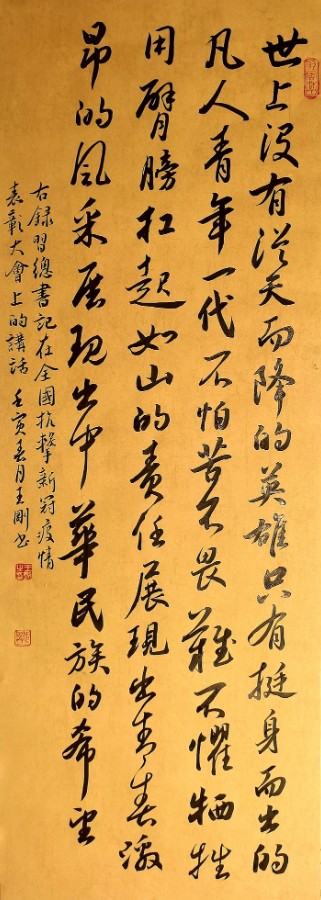 世上没有從天而降的英雄只有挺身而出的
凡人青年一代不怕苦不畏難不懼牺牲
用臂膀扛起如山的责任展現出青春激
昂的风采展现出中華民族的希望
右録習總書記在全國抗擊新冠疫情
表彰大會上的講話 壬寅春月王刚书